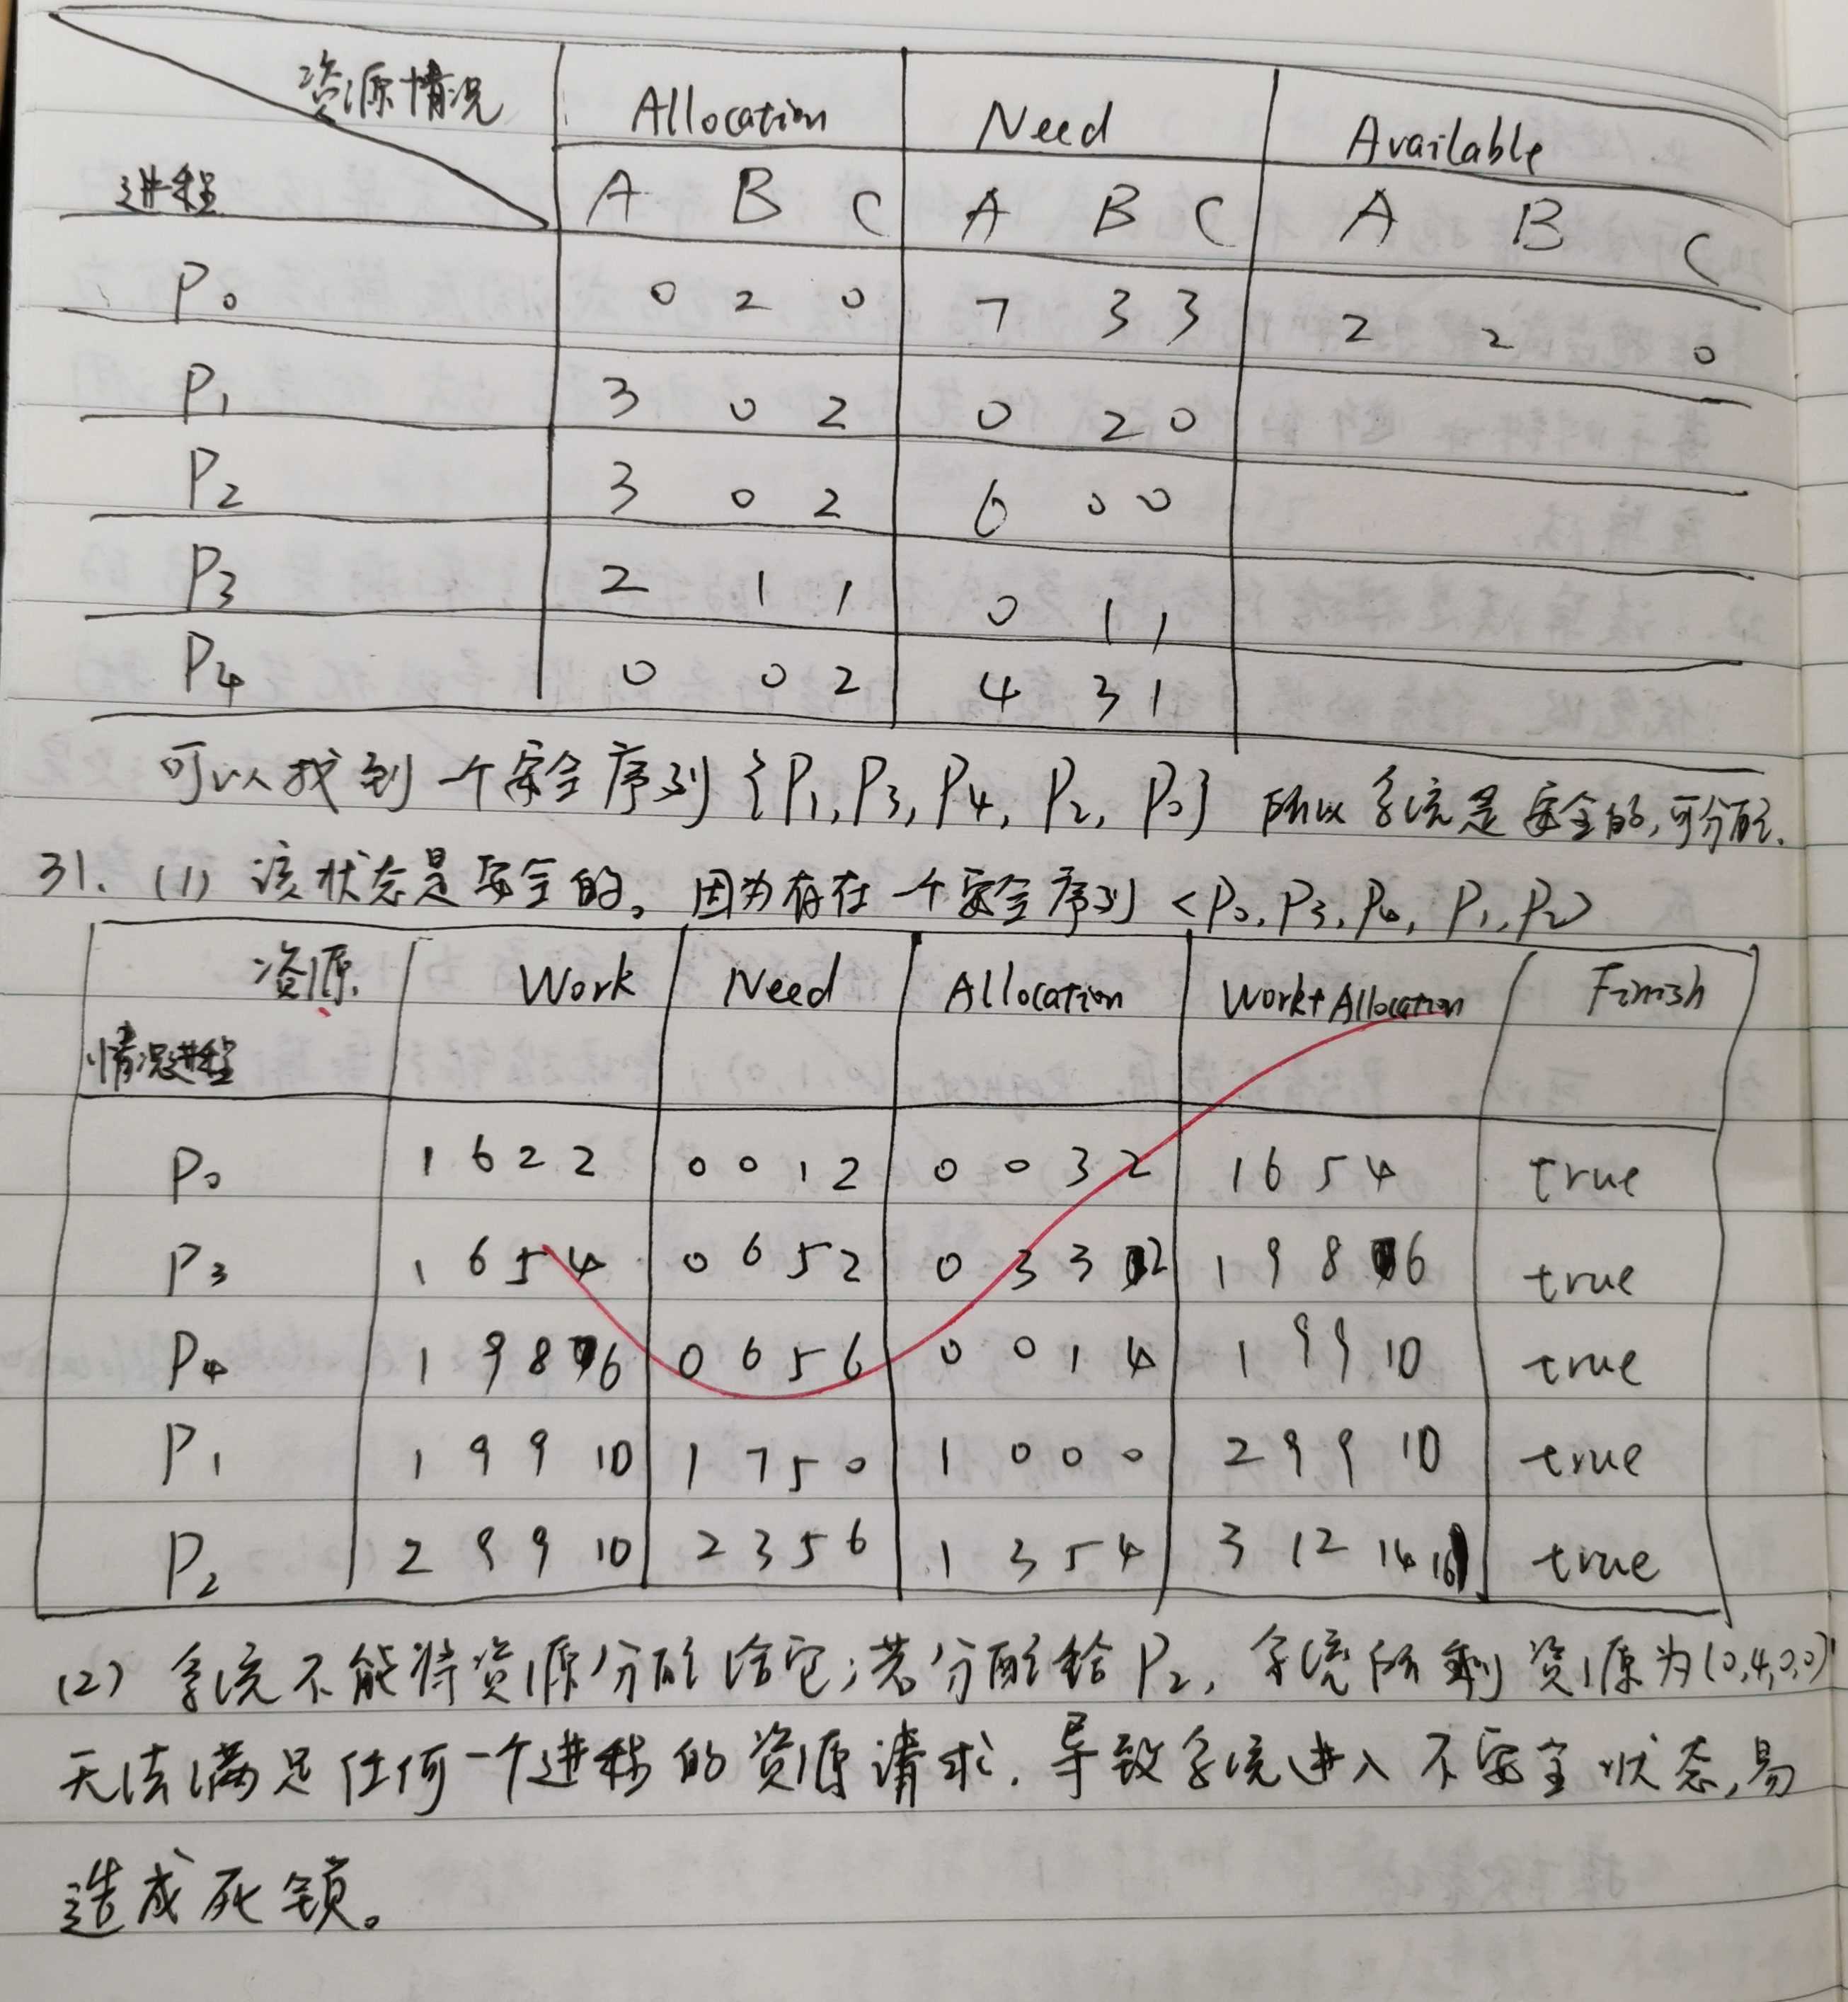 资源情况 Allocation Need Available
进程 A B C A B C A B C
P0 0 2 0 7 3 3 2 2 0
P1 3 0 2 0 2 0
P2 3 0 2 6 0 0
P3 2 1 1 0 1 1
P4 0 0 2 4 3 1
可以找到一个安全序列{P1,P3,P4,P2,P0} 所以系统是安全的,可分配.
31. (1) 该状态是安全的。因为存在一个安全序列<P0,P3,P4,P1,P2>
资源 Work Need Allocation Work+Allocation Finish
情况进程
P0 1 6 2 2 0 0 1 2 0 0 3 2 1 6 5 4 true
P3 1 6 5 4 0 6 5 2 0 3 3 2 1 9 8 6 true
P4 1 9 8 6 0 6 5 6 0 0 1 4 1 9 9 10 true
P1 1 9 9 10 1 7 5 0 1 0 0 0 2 9 9 10 true
P2 2 9 9 10 2 3 5 6 1 3 5 4 3 12 14 true
(2) 系统不能将资源分配给它;若分配给P2,系统所剩资源为(0,4,0,0)
无法满足任何一个进程的资源请求.导致系统进入不安全状态,易
造成死锁。